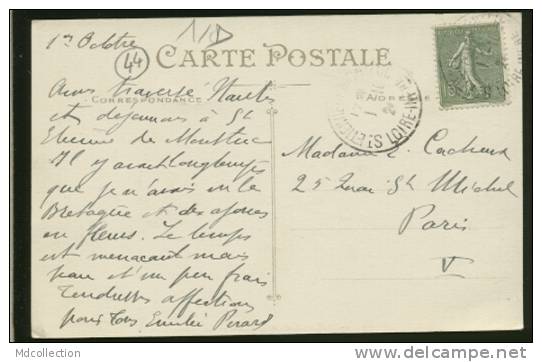 1er Octobre
44
CARTE POSTALE
CORRESPONDANCE
ADRESSE
Avons traversé Nantes
et déjeunons à St
Etienne de Montluc
Il y avait longtemps
que je n'avais vu la
Bretagne et des ajoncs
en fleurs. Le temps
est menaçant mais
beau et un peu frais
Tendresses affections
pour tous Emilie
Madame E. Cacheux
25 Quai St Michel
Paris
V
ST ETIENNE
LOIRE-INF
MdCollection
http://www.delcampe.net